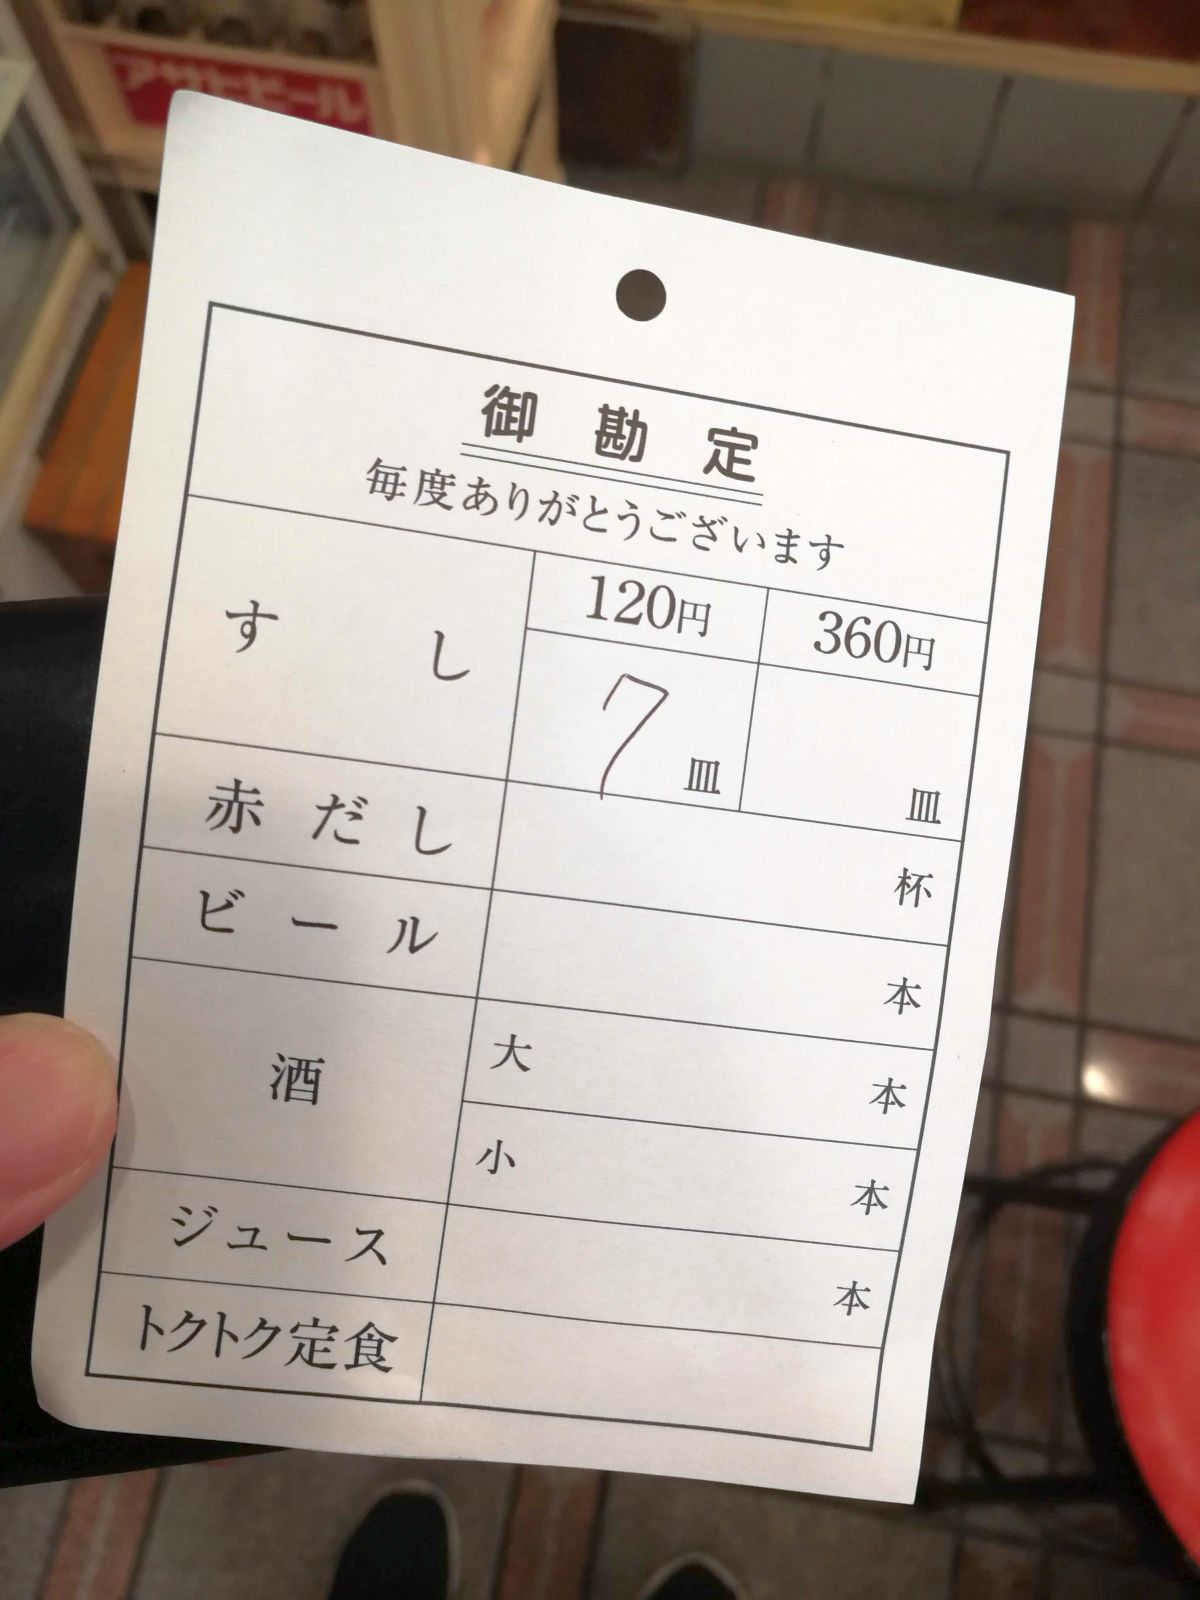 アサヒビール
御勘定
毎度ありがとうございます
すし
120円
360円
7皿
皿
赤だし
杯
ビール
本
酒
大
本
小
本
ジュース
本
トクトク定食